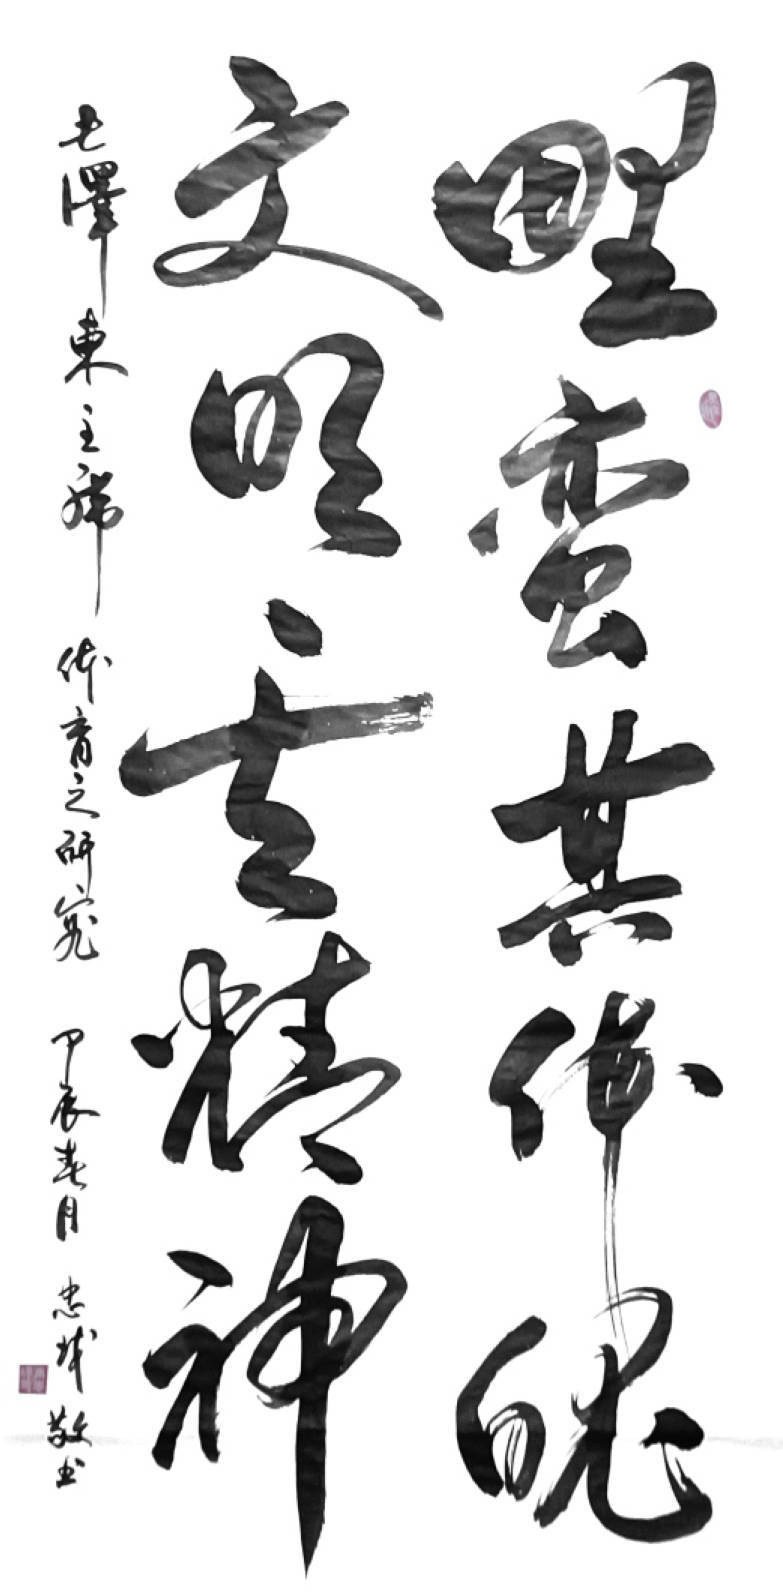 野蛮其体魄
文明其精神
毛澤東主席 体育之研究 甲辰春月 忠城敬书